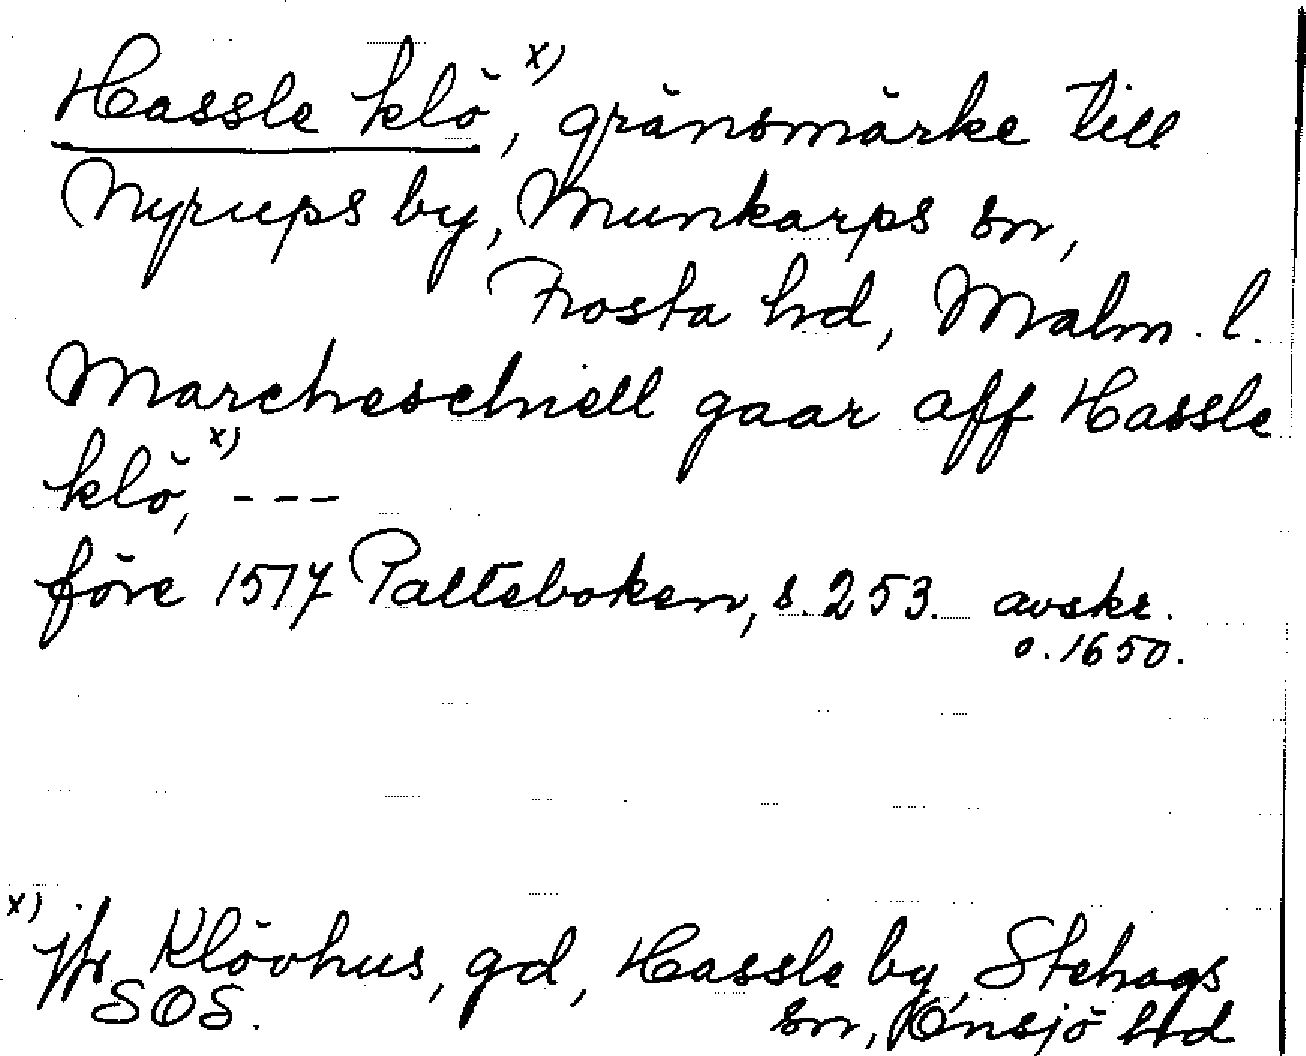 Hassle klö x), gränsmärke till
Nyrups by, Munkarps sn,
Frosta hd, Malm. l.
Marcheschiell gaar aff Hassle
klö, x) ---
före 1517 Palteboken, s. 253. avskr.
o. 1650.
x) jfr Klövhus, gd, Hassle by, Stehags
SOS. sn, Onsjö hd